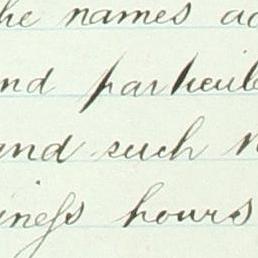 he names
nd particul
and such
iness hours